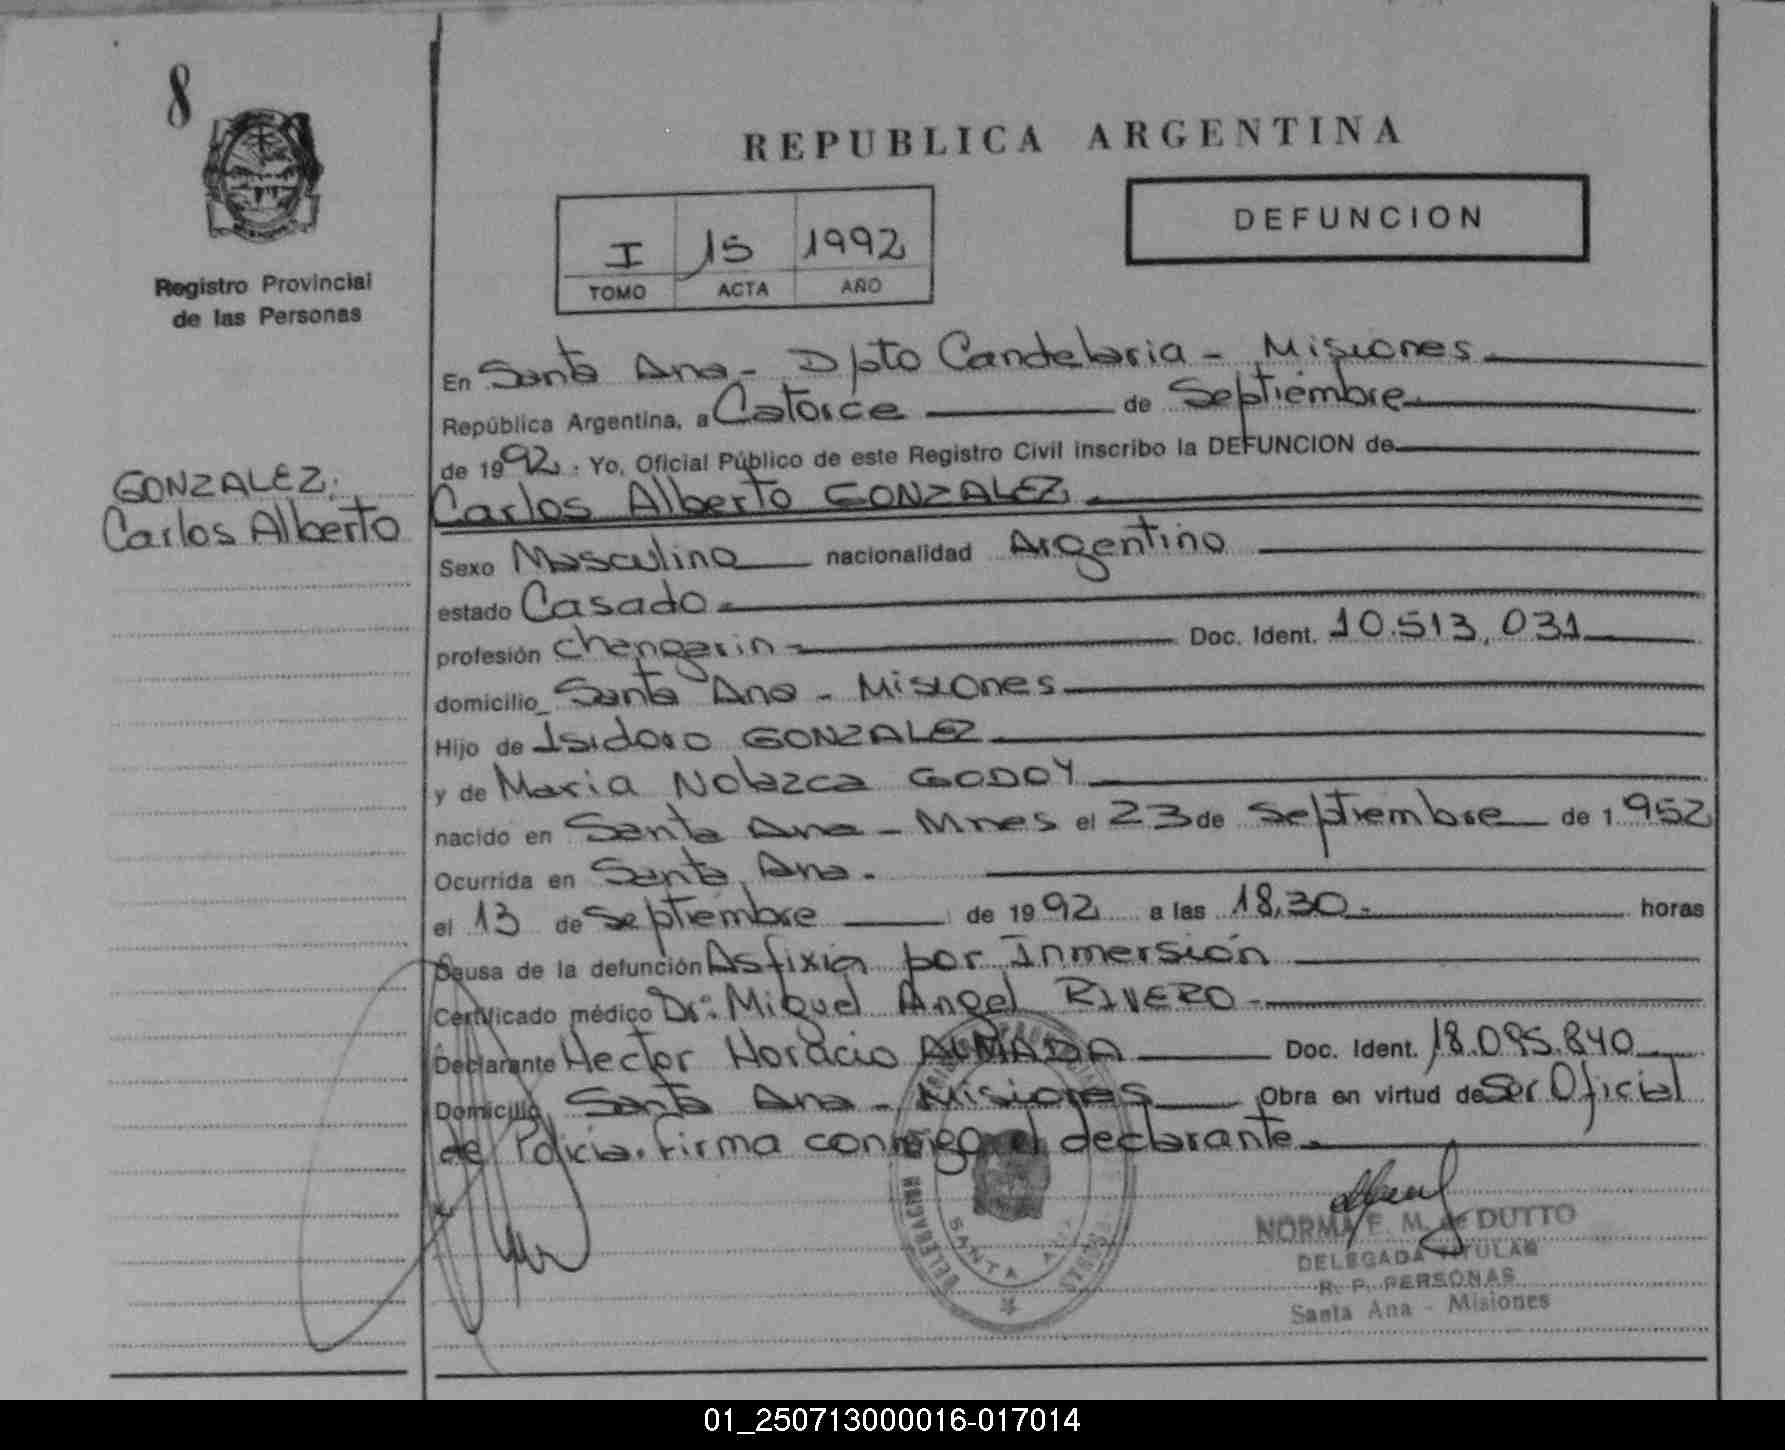 8
Registro Provincial
de las Personas
GONZALEZ;
Carlos Alberto
REPUBLICA ARGENTINA
I 15 1992
TOMO ACTA AÑO
DEFUNCION
En Santa Ana - Dpto Candelaria - Misiones
República Argentina, a Catorce de Septiembre
de 1992. Yo, Oficial Público de este Registro Civil inscribo la DEFUNCION de
Carlos Alberto GONZALEZ
Sexo Masculino nacionalidad Argentino
estado Casado
profesión changarin Doc. Ident. 10.513.031
domicilio Santa Ana - Misiones
Hijo de Isidoro GONZALEZ
y de Maria Nolazca GODOY
nacido en Santa Ana - Mnes el 23 de Septiembre de 1952
Ocurrida en Santa Ana.
el 13 de Septiembre de 1992 a las 18,30 horas
Causa de la defunción Asfixia por Inmersión
Certificado médico Dr: Miguel Angel RIVERO
Declarante Hector Horacio ALMADA Doc. Ident. 18.095.840
Domicilio Santa Ana - Misiones Obra en virtud de Ser Oficial
de Policia. Firma conmigo el declarante
SANTA ANA
NORMA F. M. de DUTTO
DELEGADA TITULAR
R. P. PERSONAS
Santa Ana - Misiones
01_250713000016-017014